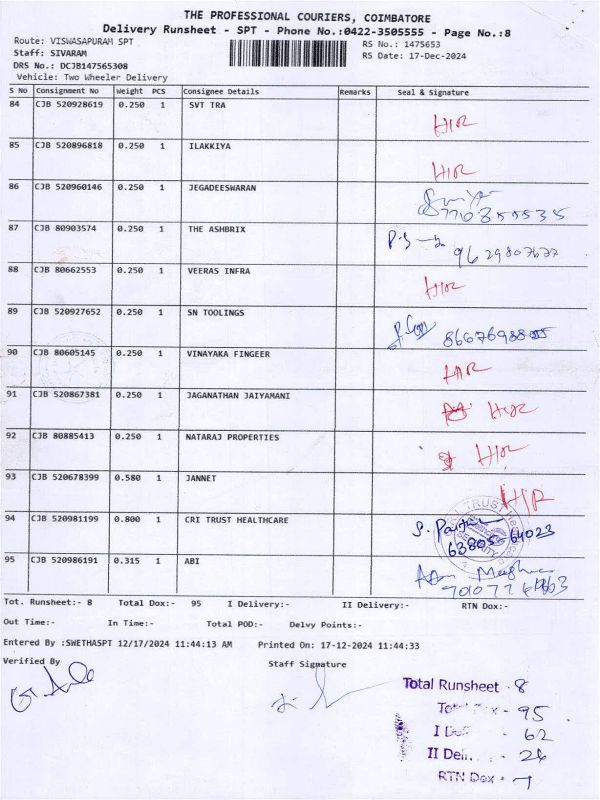 THE PROFESSIONAL COURIERS, COIMBATORE
Delivery Runsheet - SPT - Phone No.:0422-3505555 - Page No.:8
Route: VISWASAPURAM SPT RS No.: 1475653
Staff: SIVARAM RS Date: 17-Dec-2024
DRS No.: DCJB147565308
Vehicle: Two Wheeler Delivery
S No Consignment No Weight PCS Consignee Details Remarks Seal & Signature
84 CJB 520928619 0.250 1 SVT TRA HIR
85 CJB 520896818 0.250 1 ILAKKIYA HIR
86 CJB 520960146 0.250 1 JEGADEESWARAN
87 CJB 80903574 0.250 1 THE ASHBRIX
88 CJB 80662553 0.250 1 VEERAS INFRA HIR
89 CJB 520927652 0.250 1 SN TOOLINGS
90 CJB 80605145 0.250 1 VINAYAKA FINGEER HIR
91 CJB 520867381 0.250 1 JAGANATHAN JAIYAMANI HIR
92 CJB 80885413 0.250 1 NATARAJ PROPERTIES HIR
93 CJB 520678399 0.580 1 JANNET HIR
94 CJB 520981199 0.800 1 CRI TRUST HEALTHCARE 63805 64023
95 CJB 520986191 0.315 1 ABI
Tot. Runsheet:- 8 Total Dox:- 95 I Delivery:- II Delivery:- RTN Dox:-
Out Time:- In Time:- Total POD:- Delvy Points:-
Entered By :SWETHASPT 12/17/2024 11:44:13 AM Printed On: 17-12-2024 11:44:33
Verified By Staff Signature
Total Runsheet - 8
- 95
- 62
II Deli - 26
RTN Dox - 7